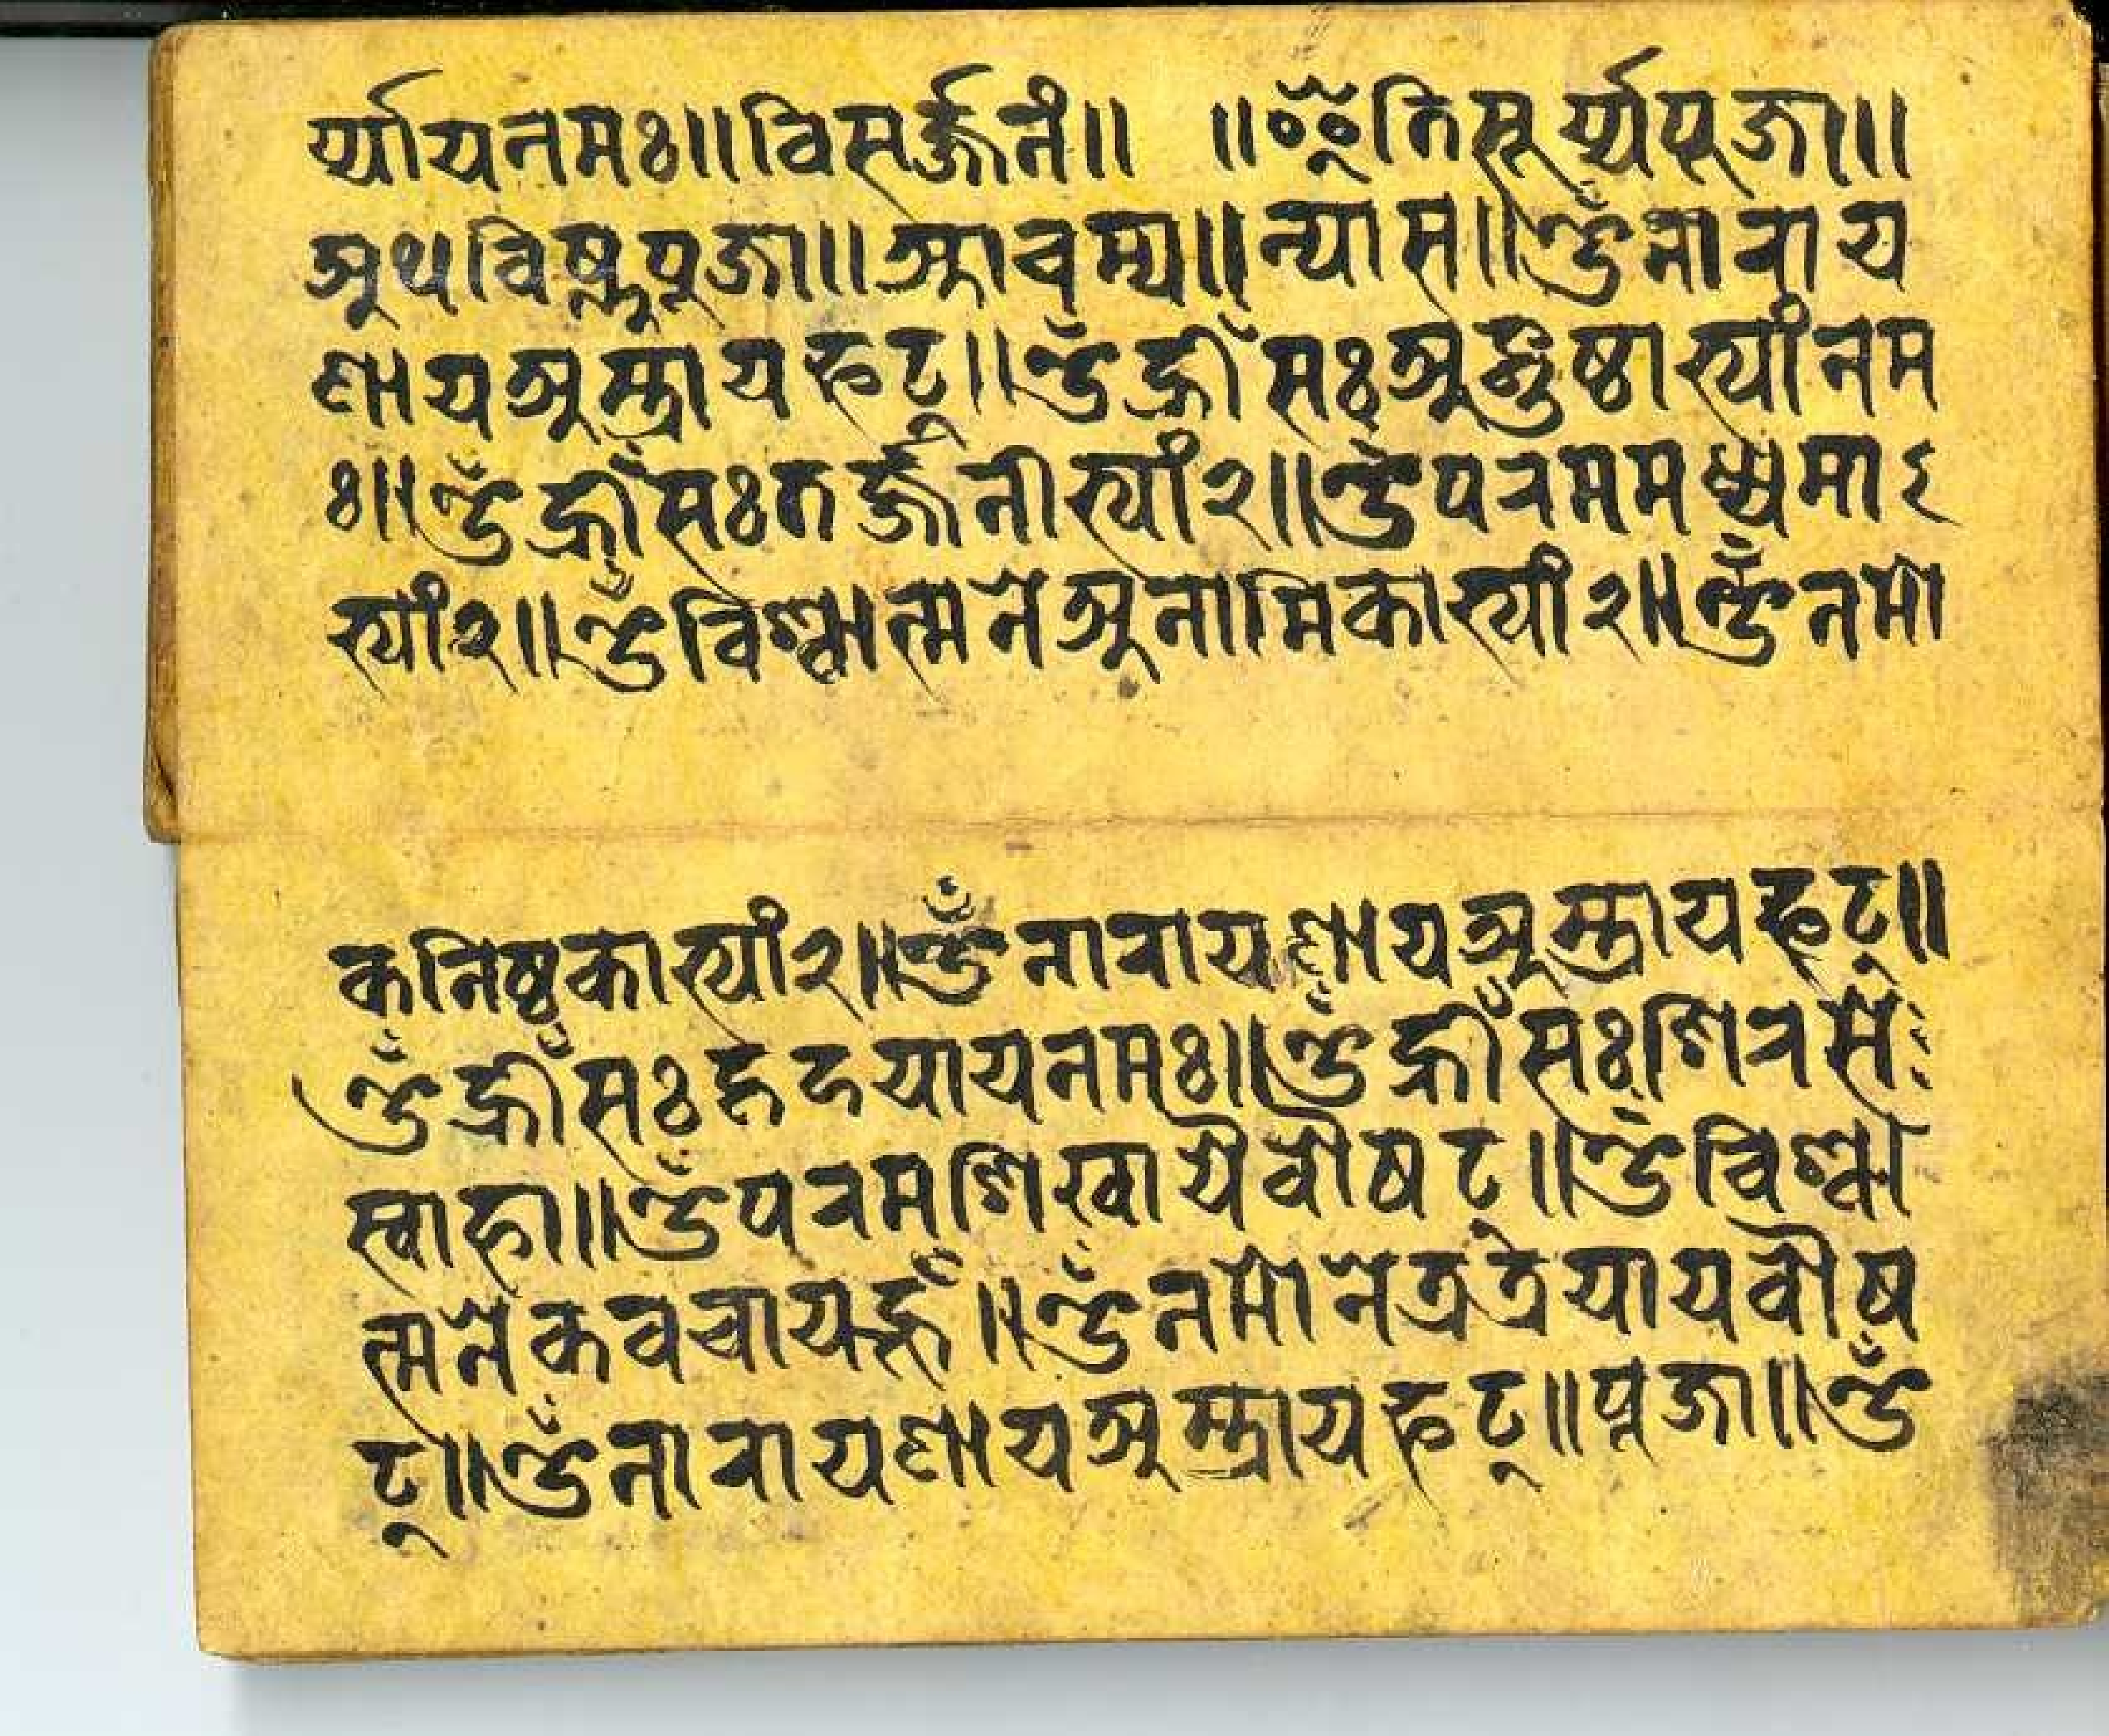 र्य्याय नमः॥ विसर्ज्जनं॥ ॥ इति सूर्य्यपूजा॥
अथ विष्णुपूजा॥ आचम्य॥ न्यास॥ ॐ नाराय
णाय अस्त्राय फट्॥ ॐ ह्रीँ सः अङ्गुष्ठाभ्यां नम
ः॥ ॐ ह्रीँ सः तर्ज्जनीभ्यां २॥ ॐ परम मध्यमा
भ्यां २॥ ॐ विश्वात्मने अनामिकाभ्यां २॥ ॐ नमो
कनिष्ठकाभ्यां २॥ ॐ नारायणाय अस्त्राय फट्॥
ॐ ह्रीँ सः हृदयाय नमः॥ ॐ ह्रीँ सः शिरसे
स्वाहा॥ ॐ परम शिखायै वौषट्॥ ॐ विश्वा
त्मने कवचाय हूँ॥ ॐ नमो नेत्रत्रेयाय वौष
ट्॥ ॐ नारायणाय अस्त्राय फट्॥ पूजा॥ ॐ